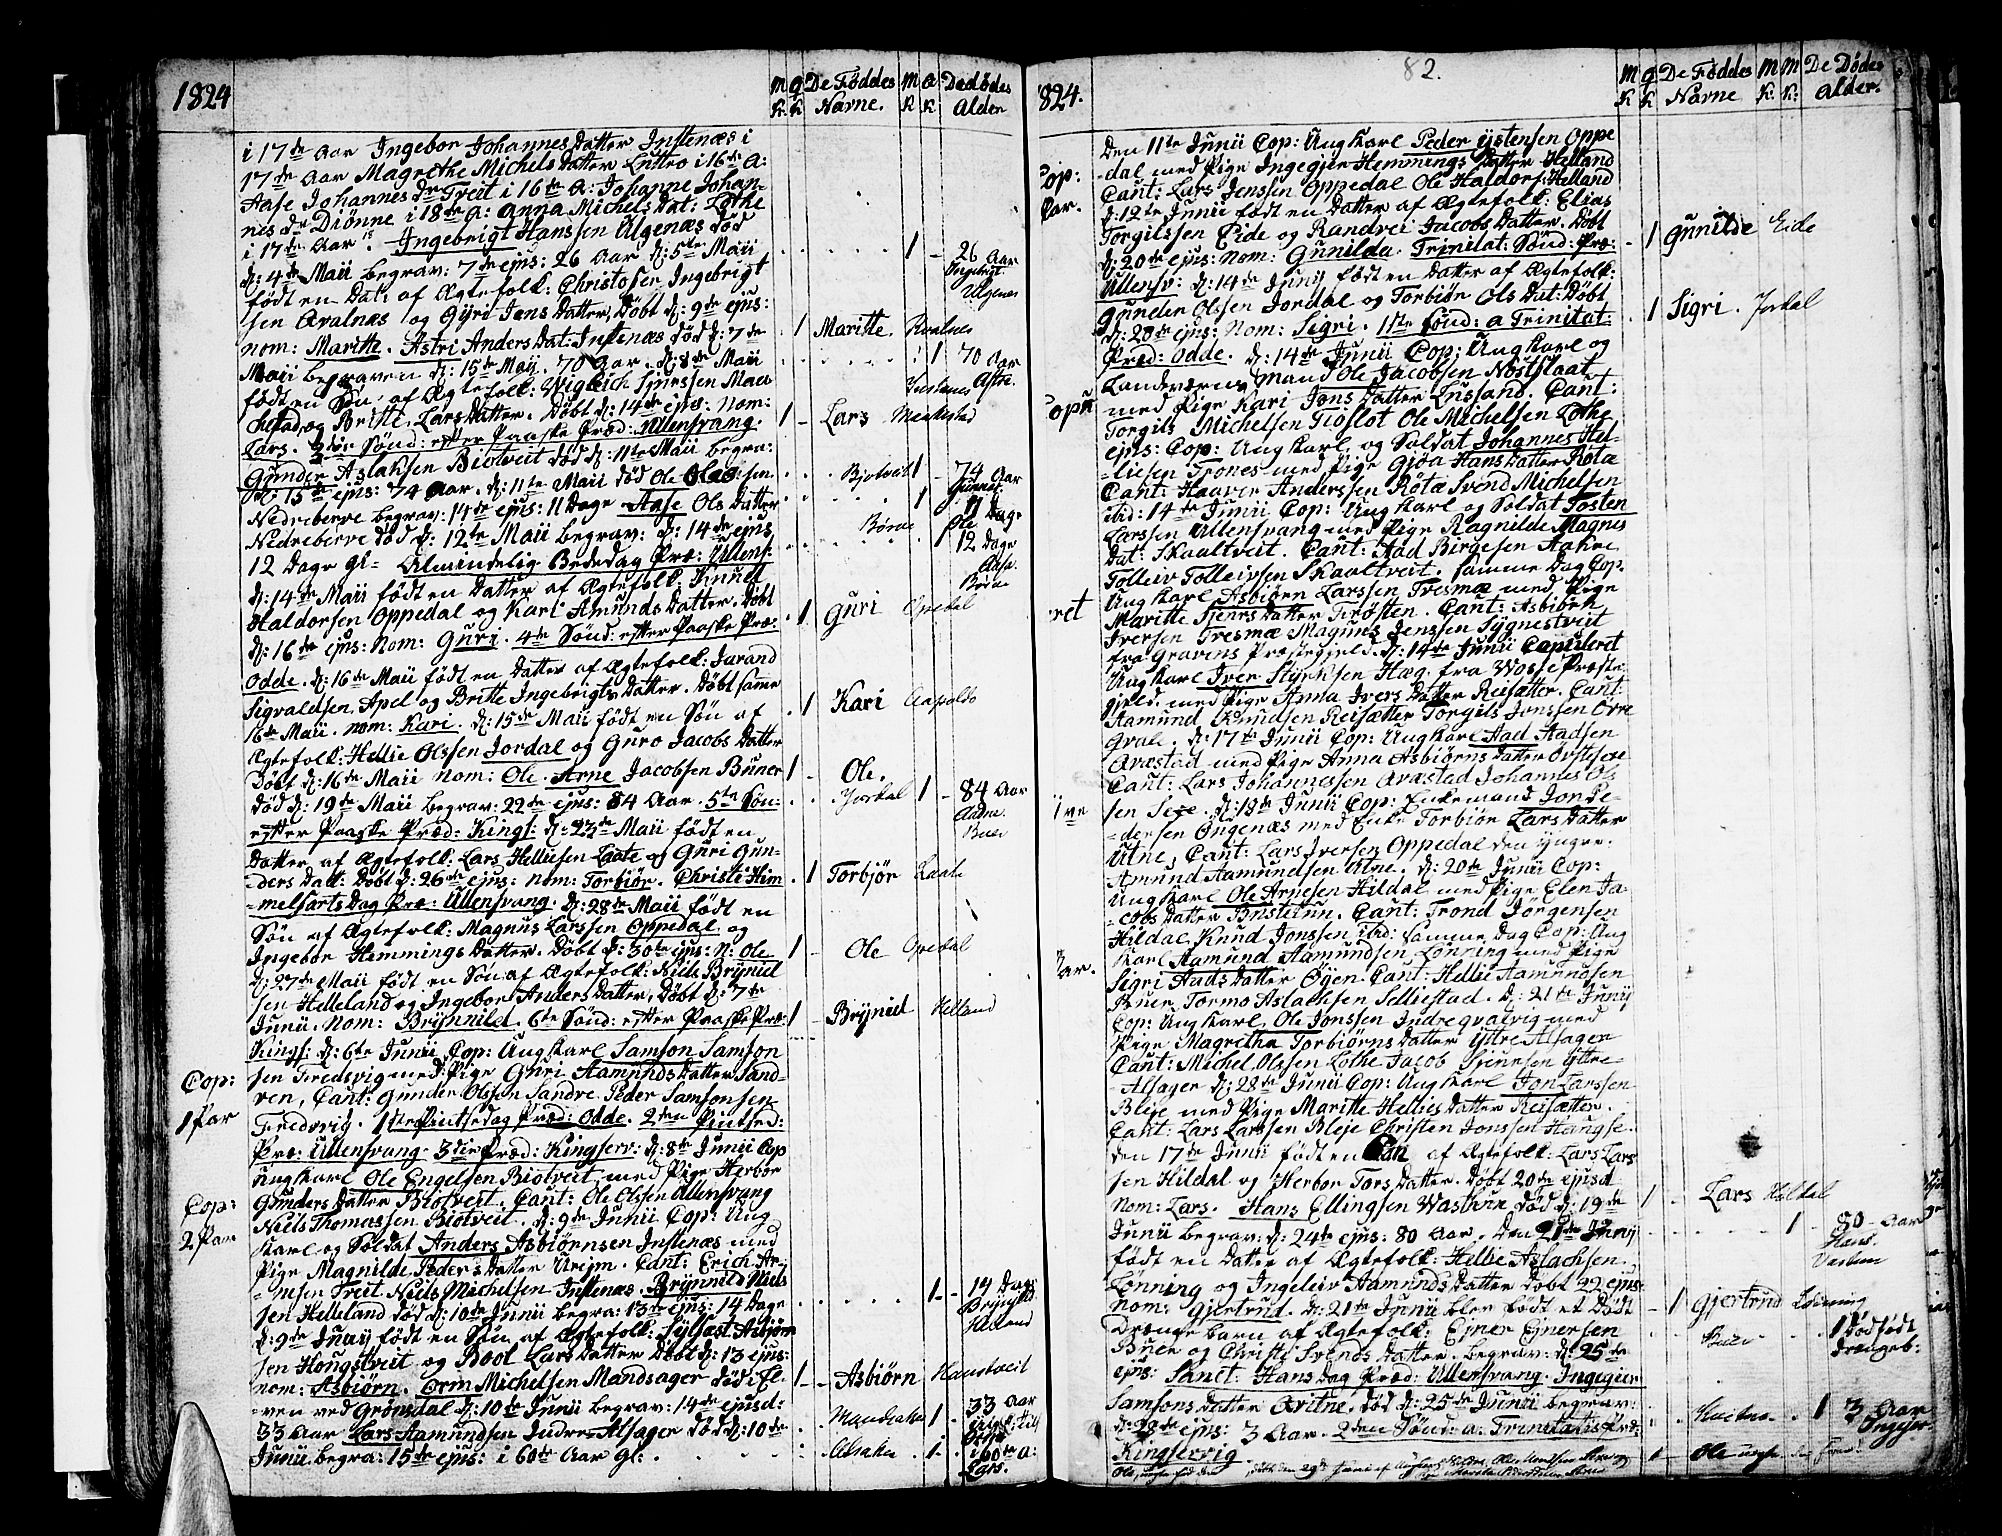 1824
M K. Q K De Føddes Navne. M K Q K De Dødes Alder
i 17de Aar Ingebor Johannes Datter Instenæs i
17de Aar Magrethe Michels Datter i 16de A:
Aase Johannes Dr Treit i 16de A: Johanne Johan-
nes dr Diønne i 18de A: Anna Michels Dat: Lothe
i 17de Aar. Ingebrigt Hanssen Ulgenæs død
d: 4de Maii begrav: 7de ejus: 26 Aar d: 5te Maii
født en Dat: af Ægtefolk: Christofer Ingebrigt
sen Avalnæs og Gyri Jens Datter, Døbt d: 9de ejus:
nom: Maritte. Astri Anders Dat: Instenæs død d: 7de
Maii begraven d: 15de Maij 70 Aar. d: 8de Maii
født en Søn af Ægtefolk: Vigleich Sjursen
og Britte Lars Datter. Døbt d: 14de ejus: Nom:
Lars. 3die Sønd: efter Paaske Præd: Ullensvang.
Gunder Aslaksen Biotveit død d: 11te Maii begra:
15de ejus: 74 Aar. d: 11te Maii død Ole Olessen
Nedreberve begrav: 14de ejus: 11 Dage Aase Ols Datter
Nedreberve død d: 12te Maii begrav: d: 14de ejus
12 Dage gl- Almindelig Bededag Præ: Ullens:
d: 14de Maii født en Datter af Ægtefolk: Knud
Haldorsen Oppedal og Kari Amunds Datter. Døbt
d: 16de ejus: Nom: Guri. 4de Sønd: efter Paaske Præ:
Odde. d: 16de Maii født en Datter af Ægtefolk: Jarand
Sigvaldsen Apel og Britte Ingebrigts Datter. Døbt samme
16de Maii. nom: Kari. d: 15de Maii født en Søn af
Ægtefolk: Hellie Olssen Jordal og Guro Jacobs Datter
Døbt d: 16de Maii nom: Ole. Arne Jacobsen Buner
død d: 19de Maii begrav: 22de ejus: 84 Aar. 5te Søn-
efter Paaske Præd: Kings: d: 23de Maii født en
Datter af Ægtefolk: Lars Helliesen Laate og Guri Gun-
ders Datt: Døbt d: 26de ejus: nom: Torbiør. Christi Him
melfarts Dag Præ: Ullensvang. D: 28de Maii født en
Søn af Ægtefolk: Magnus Larssen Oppedal og
Ingebor Hemmings Datter. Døbt d: 30te ejus: N: Ole
d: 27de Maii født en Søn af Ægtefolk: Niels Brynild
sen Helleland og Ingebor Anders Datter, Døbt d: 7de
Junii. Nom: Brynnild. 6te Sønd: efter Paaske Præ:
Kings: d: 6te Junii Cop: Ung Karl Samson Samson
sen Fredsvig med Pige Guri Aamunds Datter Sand-
ven, Cant: Gunder Olsson Sandve Peder Samsonsen
Fredsvig. 1te Pintsedag Præd: Odde. 2den Pintsed:
Præ: Ullensvang 3die Præd: Kingserv: d: 8de Junii Cop
Ung Karl Ole Engelsen Biotveit, med Pige Herbor
Gunders Datter Biotveit. Cant: Ole Olssen Ullensvang
Niels Thomassen Biotveit. d: 9de Junii Cop: Ung
Karl og Soldat Anders Asbiørnsen Instenæs med
Pige Magnilde Peders Datter Urejm. Cant: Erich Ar-
nesen Treit Niels Michelsen Instenæs. Brynnild Niels
sen Helleland død d: 10de Junii begra: 13de ejus: 14 Dage
d: 9de Junij født en Søn af Ægtefolk: Sylfæst Asbjørn
sen Hougstveit og Bool Lars Datter Døbt d: 13 ejus:
nom: Asbiørn. Orm Michelsen Mandsager død i El-
ven ved Grønsdal d: 10de Junii begrav: 14de ejusd:
33 Aar Lars Aamundsen Indre-Alsager død d: 10de
Junii begra: 15de ejus: i 60de Aar gl:
Cop:
1 Par
Cop:
2 Par
1 - 26 Aar Ingebrigt Ulgenes
1 Maritte Avalnes
1 70 Aar Instenes Astri.
1 - Lars
Bjotveit 1 - 74 Aar Gunner
1 11 Dage Børve Ole
1 12 Dage Aase. Børve
1 Guri Opedal
1 Kari Aapolds
1 - Ole. Jordal
1 - 84 Aar Aadne Buer
1 Torbjør Laate
1 - Ole Opedal
1 - Brynild Helland
1 - 14 Dage Brynild Helland
1 - Asbiørn Haustveit
Mandsaker 1 - 33 Aar
Alsaker 1. i 60de a: Lars.
82.
1824.
M K Q K De Føddes Navne M K. M K: De Dødes Alder.
Den 11te Junii Cop: Ung Karl Peder Ejstensen Oppe
dal med Pige Ingegier Hemmings Datter Helland
Cant: Lars Jenssen Oppedal Ole Haldors: Helland
d: 12te Junii født en Datter af Ægtefolk: Elias
Torgilssen Eide og Randvei Jacobs Datter. Døbt
d: 20de ejus: nom: Gunilda. Trinitat: Sønd: Præ:
Ullensv: d: 14de Junij født en Datter af Ægtefolk:
Gunder Olsen Jordal og Torbiør Ols Dat: Døbt
d: 20de ejus: Nom: Sigri. 1ste Sønd: a Trinitat:
Præd: Odde. d: 14de Junii Cop: Ung Karl og
Landeværns Mand Ole Jacobsen Nostflaat
med Pige Kari Jons Datter Lussand. Cant:
Torgils Michelsen Tioflot Ole Michelsen Lothe
ejus: Cop: Ung Karl og Soldat Johannes Hel-
liesen Trones med Pige Gjøa Hans Datter Røtæ
Cant: Haaver Anderssen Røtæ Svend Michelsen
ibid: 14de Junii Cop: Ung Karl og Soldat Tosten
Larssen Ullensvang med Pige Ragnilde Magnes
Dat: Skaaltveit. Cant: Aad Birgesen Aakre
Tolleiv Tolleivsen Skaaltveit. samme Dag Cop.
Ung Karl Asbiørn Larssen Tresmæ med Pige
Maritte Tjeners Datter Trøsten. Cant: Asbiørn
Iversen Tresmæ Magnus Jenssen Tygnestveit
fra Gravens Præstegield. d: 14de Junii Copuleret
Ung Karl Iver Styrksen Hæg fra Wosse Præste
gjeld. med Pige Anna Ivers Datter Reisætter. Cant:
Aamund Knudsen Reisætter Torgils Jonssen Ovre
Qvale. d: 17de Junii Cop: Ung Karl Aad Aadsen
Aræstad med Pige Anna Asbiørns Datter
Cant: Lars Johannessen Aræstad Johannes Ols
sen Sexe. d: 18de Junii Cop: Enkemand Jon Pe-
dersen Ongenæs med Enke Torbiør Lars Datter
Utne, Cant: Lars Iversen Oppedal den yngre.
Amund Aamundsen Utne. d: 20de Junii Cop:
Ung Karl Ole Arnesen Hildal med Pige Elen Ja-
cobs Datter Bustetun. Cant: Trond Jørgensen
Hildal, Knud Jonssen ibid: samme Dag Cop: Ung
Karl Aamund Aamundsen Lønning med Pige
Sigri Aads Datter Øyen. Cant: Hellie Aamundsen
Buer, Tormo Aslachsen Selliestad. d: 21de Junij
Cop: Ung Karl, Ole Jonssen Indreqvalvig med
Pige Magrethe Torbiørns Datter Yttre Alsager
Cant: Michel Olssen Lothe Jacob Siursen Yttre-
Alsager d: 28de Junii Cop: Ung Karl Jon Larssen
Bleje med Pige Maritte Hellies Datter Reisætter.
Cant: Lars Larssen Bleje Christen Jonssen Haugse.
den 17de Junii født en af Ægtefolk: Lars Lars
sen Hildal og Herbor Tors Datter. Døbt 20de ejusd
Nom: Lars. Hans Ellingsen Wastbun død d: 19de
Junii begrav: d: 24de ejus: 80 Aar. Den 21de Junij
født en Datter af Ægtefolk: Hellie Aslachsen
Lønning og Ingeleiv Aamunds Datter Døbt 22 ejus:
nom: Gjertrud. d: 21de Junii blev født et Død
Drænge barn af Ægtefolk: Ejner Ejnersen
Buer og Christi Svends Datter. begrav: d: 25de
ejus: Sanct: Hans Dag Præd: Ullensvang. Ingegier
Samsons Datter Qvitne, død d: 25de Junii begrav:
d: 28de ejus: 3 Aar. 2den Sønd: a: Trinitatis Præd:
Kingservig
Cop:
Par.
Copu
ret
Ive
Par.
1 Gunilde Eide
1 Sigri. Jordal
1 - Lars Hildal
1 - 80 - Aar Hans. Vastun
1 Gjertrud Lønning
Buer 1 Dødfødt Drængeb:
1 3 Aar Ingjer.
1 - Ole